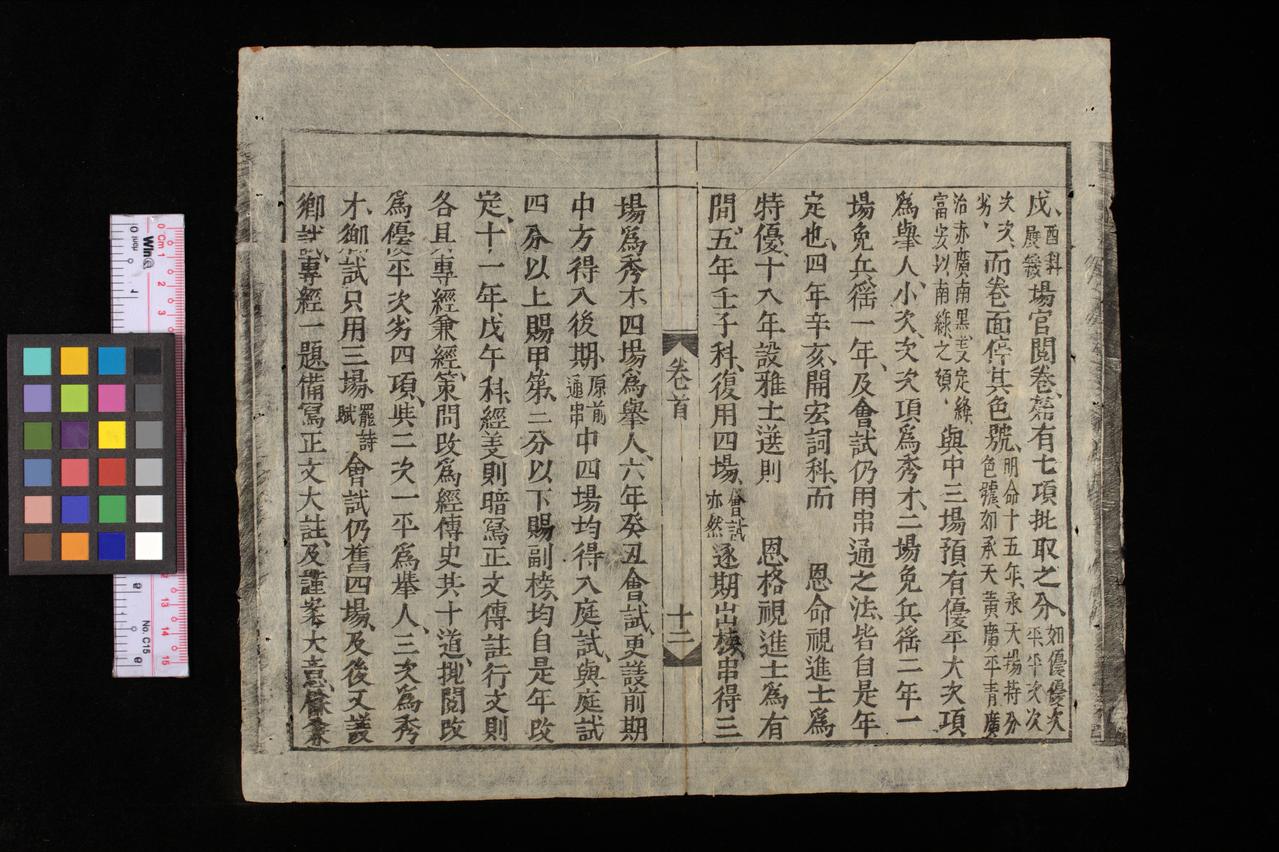 戍、酉科展幾場官閱卷、著有七項批取之分、如優優次平平次次
次次、劣、而卷面停其色號、明命十五年、承天場特分色號如承天黃廣平青廣
治赤廣南黑乂定綠、富安以南綠之類、與中三場預有優平大次項
爲舉人、小次次次項爲秀才、二場免兵徭二年一
場免兵徭一年、及會試仍用串通之法、皆自是年
定也、四年辛亥、開宏詞科、而 恩命視進士爲
特優、十八年設雅士選則 恩格視進士爲有
間、五年壬子科、復用四場、會試亦然逐期出榜串得三
卷首
十二
場爲秀才、四場爲舉人、六年癸丑會試、更議前期
中方得入後期、原前通串中四場均得入庭試、與庭試
四分以上賜甲第、二分以下賜副榜、均自是年改
定、十一年、戊午科、經義則暗寫正文傳註行文則
各具專經兼經、策問改爲經傳史共十道、批閱改
爲優平次劣四項、與二次一平爲舉人、三次爲秀
才、鄉試只用三場、罷詩賦會試仍舊四場、及後又議
鄉試、專經一題、備寫正文大註、及謹案大意、餘兼
Wing
0 Cm 1 2 3 13 14 15
0 inch 1 6
No. C15